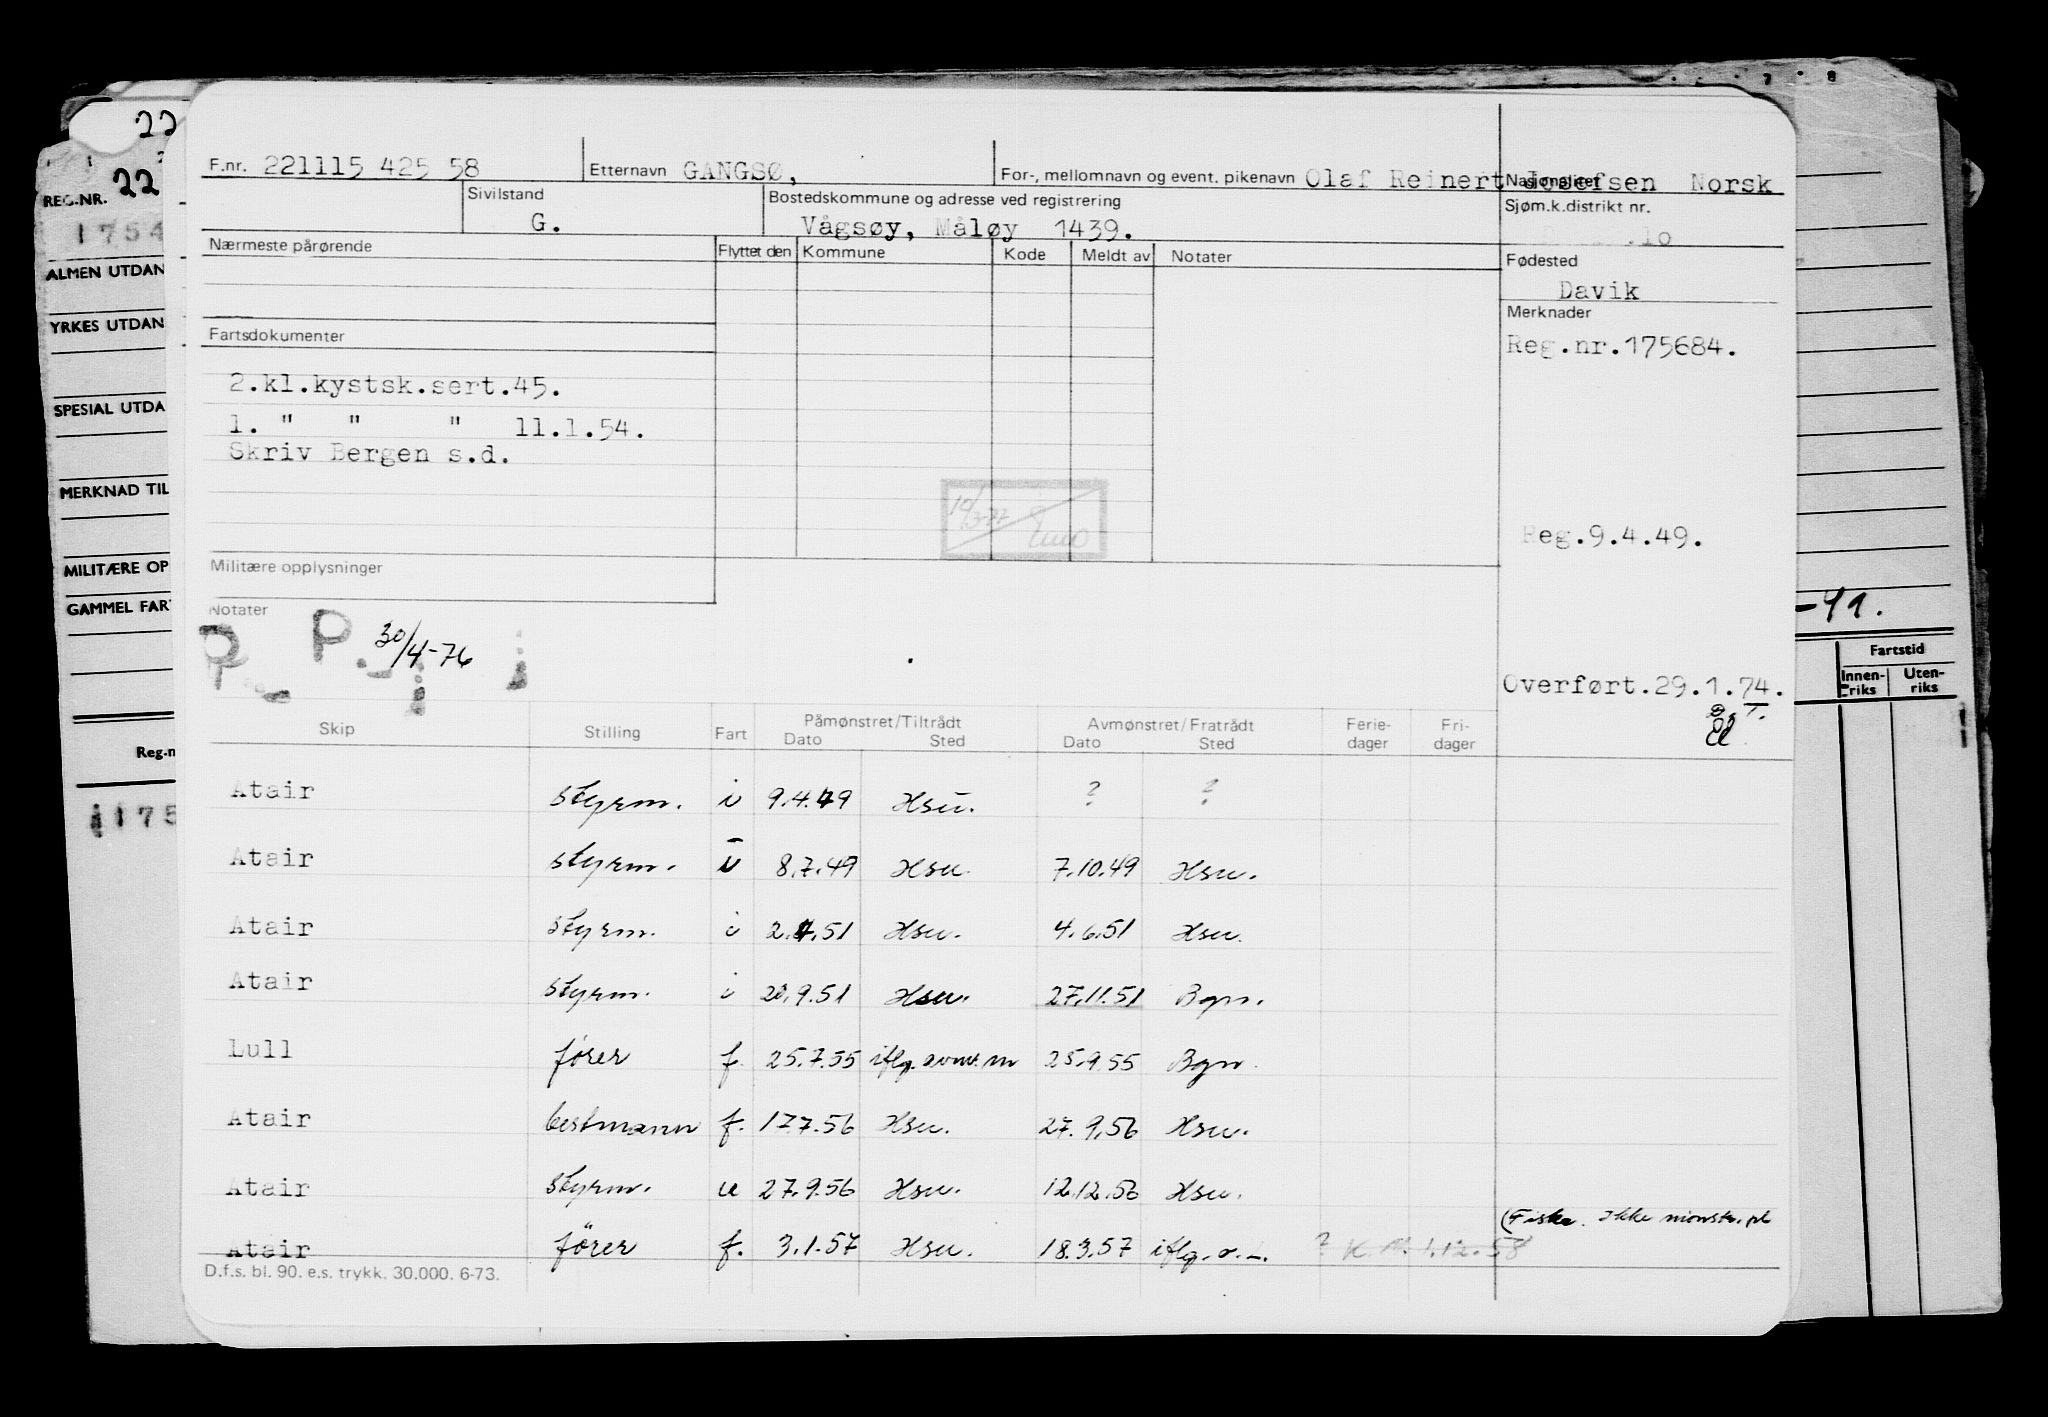 F.nr. 221115 425 58 Etternavn GANGSØ, For-, mellomnavn og event. pikenavn Olaf Reinert Josefsen Nasjonalitet Norsk
Sivilstand G. Bostedskommune og adresse ved registrering Vågsøy, Måløy 1439. Sjøm.k.distrikt nr. 10
Nærmeste pårørende Flyttet den Kommune Kode Meldt av Notater Fødested
Davik
Merknader
Fartsdokumenter Reg.nr.175684.
2.kl.kystsk.sert.45.
1. " " " 11.1.54.
Skriv Bergen s.d.
10/3-77
Reg.9.4.49.
Militære opplysninger
Notater
P. P. 30/4-76
Overført.29.1.74.
Skip Stilling Fart Påmønstret/Tiltrådt Avmønstret/Fratrådt Ferie- Fri-
Dato Sted Dato Sted dager dager
Atair styrm. i 9.4.49 Hsu. ? ?
Atair styrm. u 8.7.49 Hsu 7.10.49 Hsu.
Atair styrm. i 2.4.51 Hsu. 4.6.51 Hsu.
Atair styrm. i 20.9.51 Hsu. 27.11.51 Bgn.
Lull fører f. 25.7.55 iflg. avm. m 25.9.55 Bgn.
Atair bestmann f. 17.7.56 Hsu. 27.9.56 Hsu.
Atair styrm. u 27.9.56 Hsu. 12.12.56 Hsu.
(Fiske. Ikke mønstr. pl
Atair fører f. 3.1.57 Hsu. 18.3.57 iflg. ? 1.12.58
D.f.s. bl. 90. e.s. trykk. 30.000. 6-73.
22
REG.NR. 22
1754
ALMEN UTDAN
YRKES UTDAN
SPESIAL UTDA
MERKNAD TIL
MILITÆRE OP
GAMMEL FAR
Reg.n
175
7 8
-41.
Fartstid
Innen- Uten-
riks riks